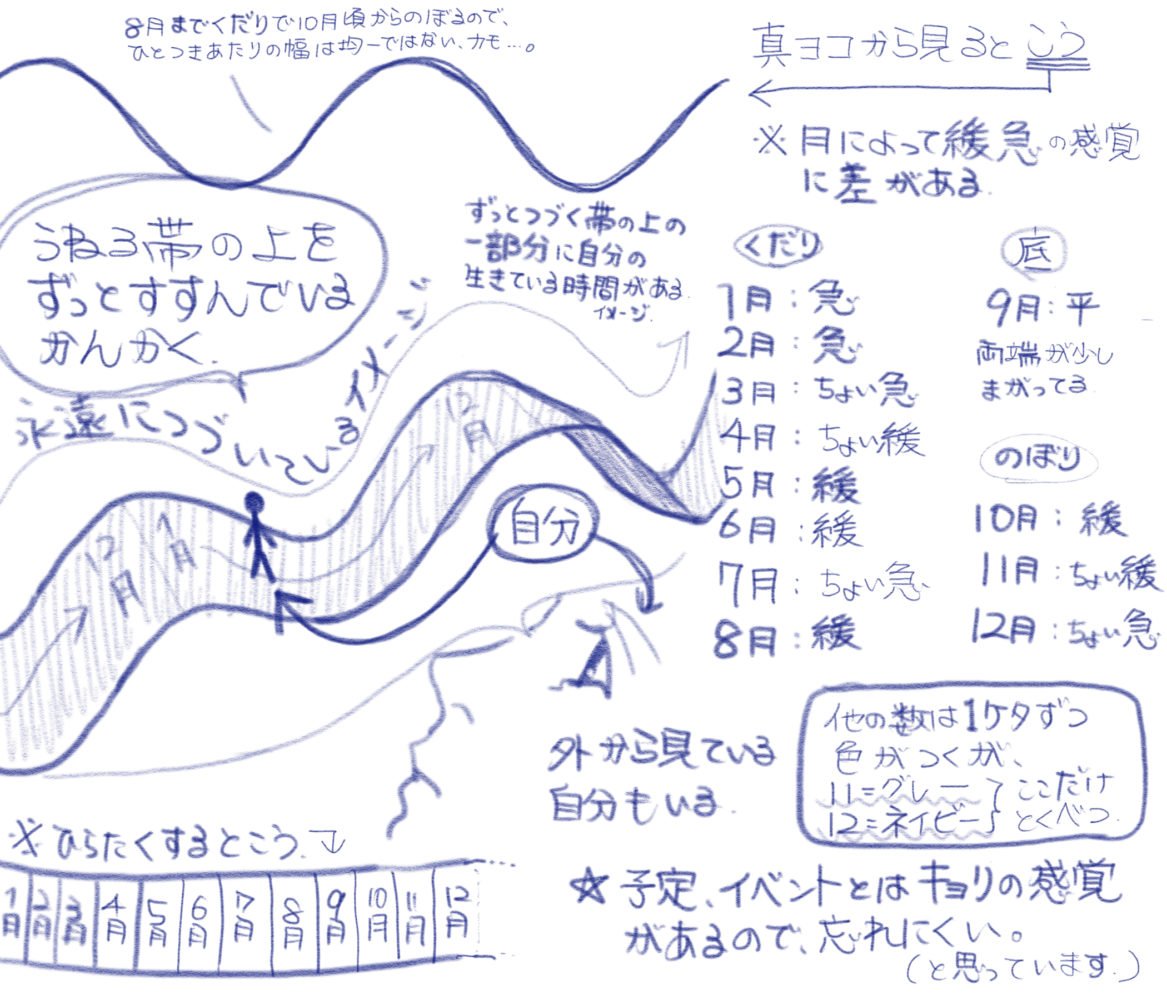 8月までくだりで10月頃からのぼるので、
ひとつきあたりの幅は均一ではない、カモ…。
真ヨコから見るとこう
※月によって緩急の感覚
に差がある.
うねる帯の上を
ずっとすすんでいる
かんかく.
ずっとつづく帯の上の
一部分に自分の
生きている時間がある.
イメージ.
永遠につづいているイメージ
12月
1月
12月
自分
くだり
1月:急
2月:急
3月:ちょい急
4月:ちょい緩
5月:緩
6月:緩
7月:ちょい急、
8月:緩
底
9月:平
両端が少し
まがってる.
のぼり
10月:緩
11月:ちょい緩
12月:ちょい急
外から見ている
自分もいる.
他の数は1ケタずつ
色がつくが、
11=グレー } ここだけ
12=ネイビー } とくべつ.
※ひらたくするとこう.
1月 2月 3月 4月 5月 6月 7月 8月 9月 10月 11月 12月
☆予定、イベントとはキョリの感覚
があるので、忘れにくい。
(と思っています.)